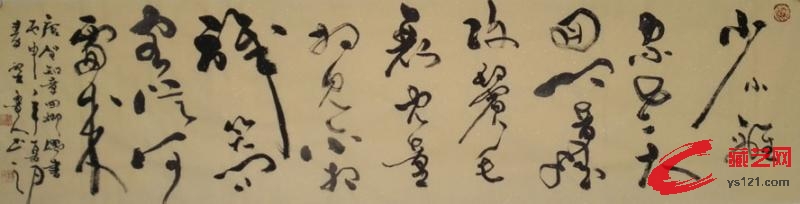 少小離
家老大
回乡音
改鬢毛
衰兒童
相見不相
識笑問
客從何
處來
唐賀知章回鄉偶書
丙申年夏月
藏艺网
ys121.com